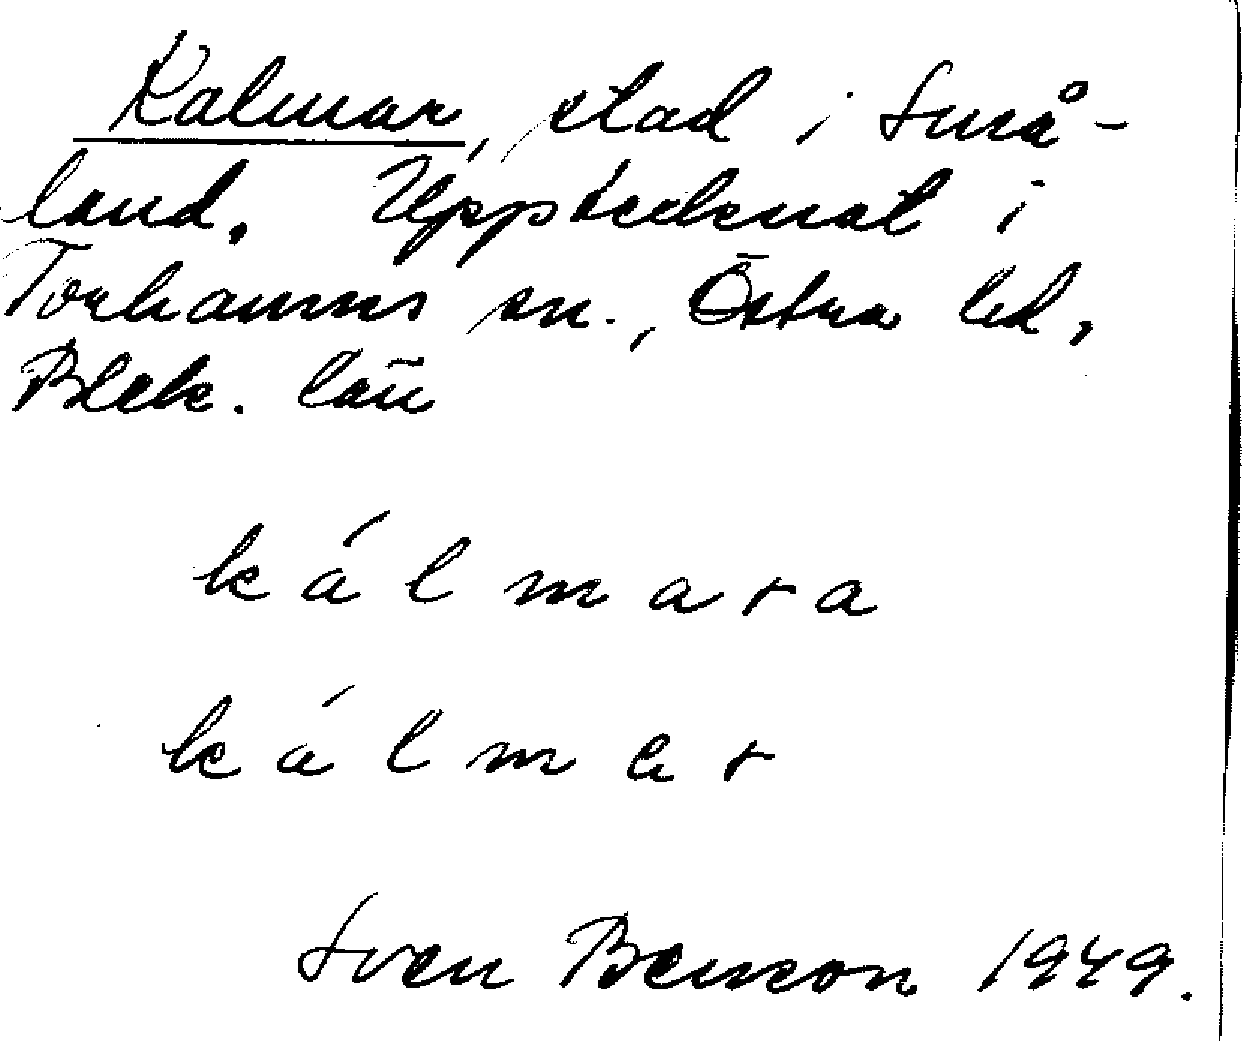 Kalmar, stad i Små-
land. Upptecknat i
Torhamns sn., Östra hd,
Blek. län
kálmara
kálmar
Sven Benson 1949.